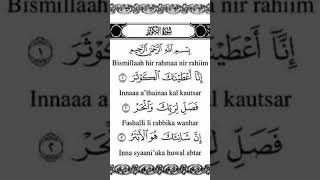 سورة الكوثر
بِسْمِ اللّٰهِ الرَّحْمٰنِ الرَّحِيْمِ
Bismillaah hir rahmaa nir rahiim
إِنَّآ أَعْطَيْنٰكَ الْكَوْثَرَ ١
Innaaa a'thainaa kal kautsar
فَصَلِّ لِرَبِّكَ وَانْحَرْ ٢
Fashalli li rabbika wanhar
إِنَّ شَانِئَكَ هُوَ الْأَبْتَرُ ٣
Inna syaani'aka huwal abtar